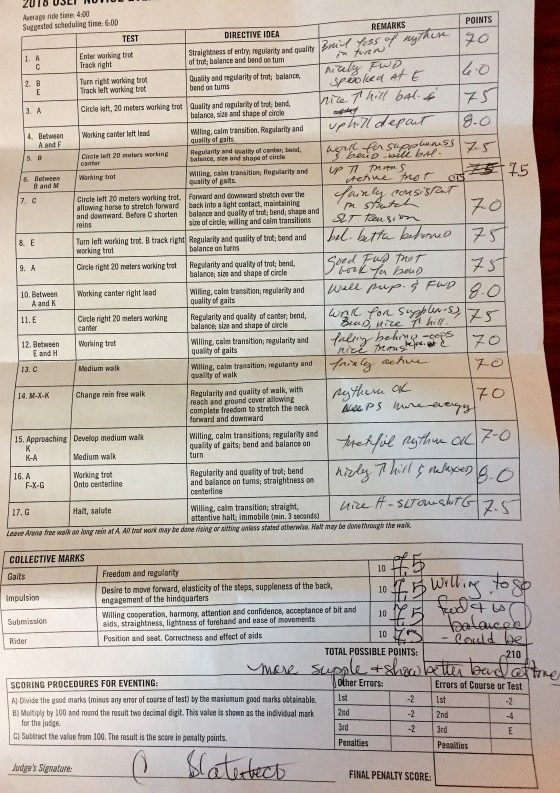 2018 USEF NOVICE
Average ride time: 4:00
Suggested scheduling time: 6:00
TEST DIRECTIVE IDEA REMARKS POINTS
1. A Enter working trot Straightness of entry; regularity and quality Brief loss of rythem 7.0
C Track right of trot; balance and bend on turn in turn
2. B Turn right working trot Quality and regularity of trot; balance, nicely FWD 6.0
E Track left working trot bend on turns spooked AT E
3. A Circle left, 20 meters working trot Quality and regularity of trot; bend, nice ↑ hill bal. 7.5
balance, size and shape of circle
4. Between Working canter left lead Willing, calm transition. Regularity and uphill depart 8.0
A and F quality of gaits.
5. B Circle left 20 meters working Regularity and quality of canter; bend, work for suppleness 7.5
canter balance, size and shape of circle & bend
6. Between Working trot Willing, calm transition; Regularity and up ↑ trans 7.5 7.5
B and M quality of gaits. active trot
7. C Circle left 20 meters working trot, Forward and downward stretch over the fairly consistent 7.0
allowing horse to stretch forward back into a light contact, maintaining in stretch
and downward. Before C shorten balance and quality of trot; bend; shape and SLT tension
reins size of circle; willing and calm transitions
8. E Turn left working trot. B track right Regularity and quality of trot; bend and bal. better behind 7.5
working trot balance on turns
9. A Circle right 20 meters working trot Regularity and quality of trot; bend, Good FWD trot 7.5
balance; size and shape of circle work for bend
10. Between Working canter right lead Willing, calm transition; regularity and well prep. & FWD 8.0
A and K quality of gaits
11. E Circle right 20 meters working Regularity and quality of canter; bend, work for suppleness, 7.5
canter balance; size and shape of circle Bend, nice ↑ hill
12. Between Working trot Willing, calm transition; regularity and falling behind - oops 7.0
E and H quality of gaits nice trans before C
13. C Medium walk Willing, calm transition; regularity and fairly active 7.0
quality of walk
14. M-X-K Change rein free walk Regularity and quality of walk, with rythem OK 7.0
reach and ground cover allowing needs more energy
complete freedom to stretch the neck
forward and downward
15. Approaching Develop medium walk Willing, calm transitions; regularity and tactful rythem OK 7.0
K quality of gaits; bend and balance on
K-A Medium walk turn
16. A Working trot Regularity and quality of trot; bend nicely ↑ hill & relaxed 8.0
F-X-G Onto centerline and balance on turns; straightness on
centerline
17. G Halt, salute Willing, calm transition; straight, nice H - SLT 7.5
attentive halt; immobile (min. 3 seconds)
Leave Arena free walk on long rein at A. All trot work may be done rising or sitting unless stated otherwise. Halt may be done through the walk.
COLLECTIVE MARKS
Gaits Freedom and regularity 10 7.5
Impulsion Desire to move forward, elasticity of the steps, suppleness of the back, 10 7.5 Willing to go
engagement of the hindquarters
Submission Willing cooperation, harmony, attention and confidence, acceptance of bit and 10 7.5 fwd & is
aids, straightness, lightness of forehand and ease of movements balanced
Rider Position and seat. Correctness and effect of aids 10 7.5 - could be
TOTAL POSSIBLE POINTS: 210
more supple & show better bend at times
SCORING PROCEDURES FOR EVENTING: Other Errors: Errors of Course or Test
A) Divide the good marks (minus any error of course of test) by the maxiumum good marks obtainable. 1st -2 1st -2
B) Multiply by 100 and round the result two decimal digit. This value is shown as the individual mark 2nd -2 2nd -4
for the judge. 3rd -2 3rd E
C) Subtract the value from 100. The result is the score in penalty points. Penalties Penalties
Judge's Signature: FINAL PENALTY SCORE: